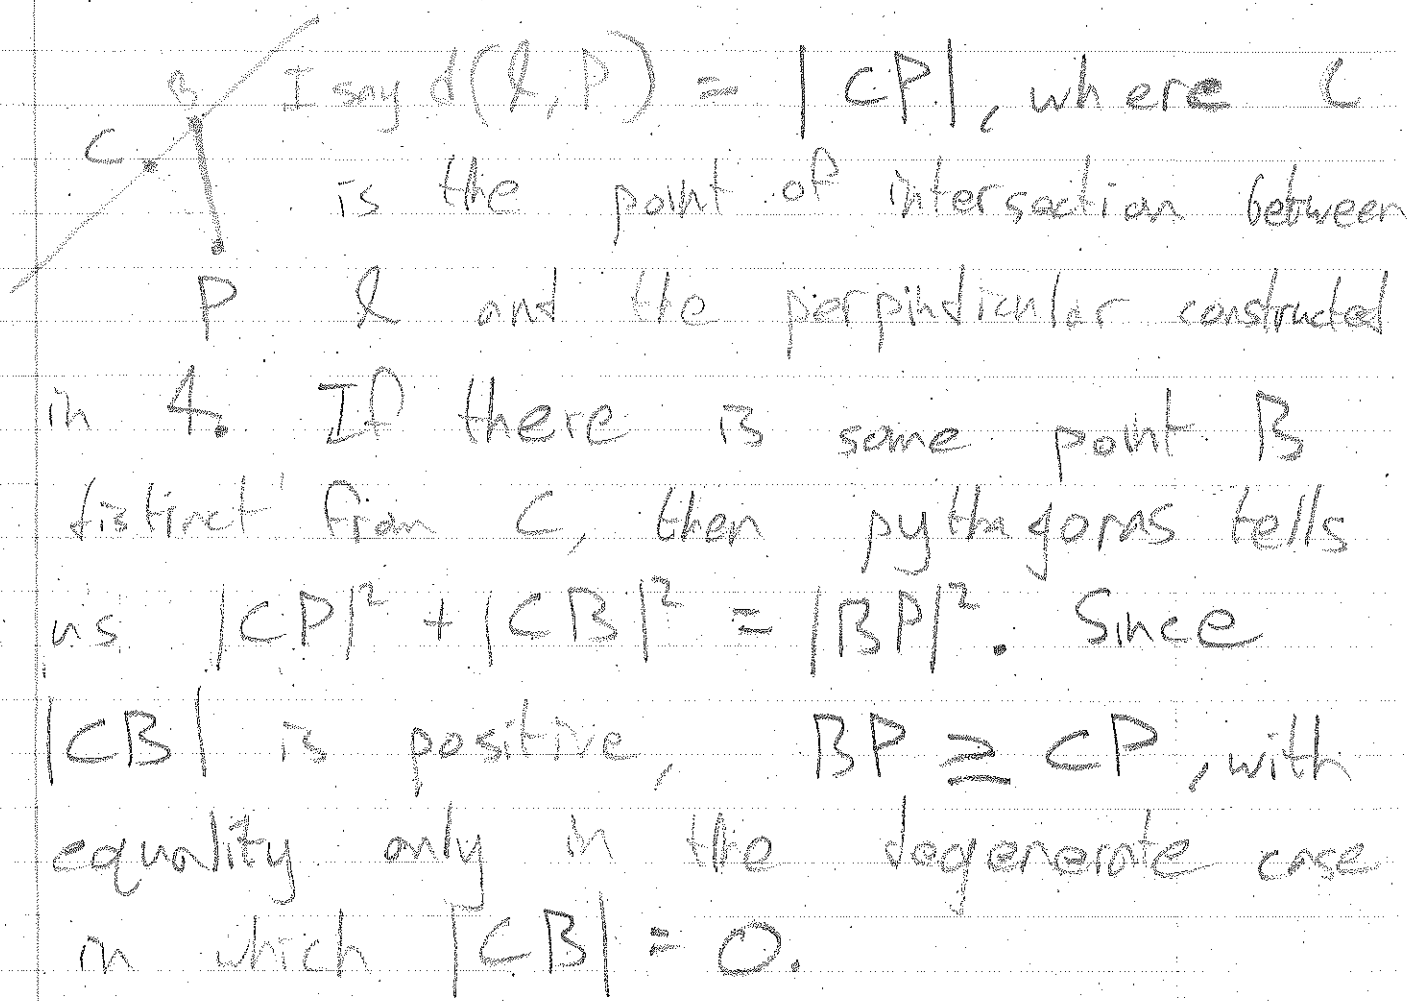 B I say d(l, P) = |CP|, where C
C is the point of intersection between
P l and the perpindicular constructed
in 4. If there is some point B
distinct from C, then pythagoras tells
us |CP|² + |CB|² = |BP|². Since
|CB| is positive, BP ≥ CP, with
equality only in the degenerate case
in which |CB| = 0.